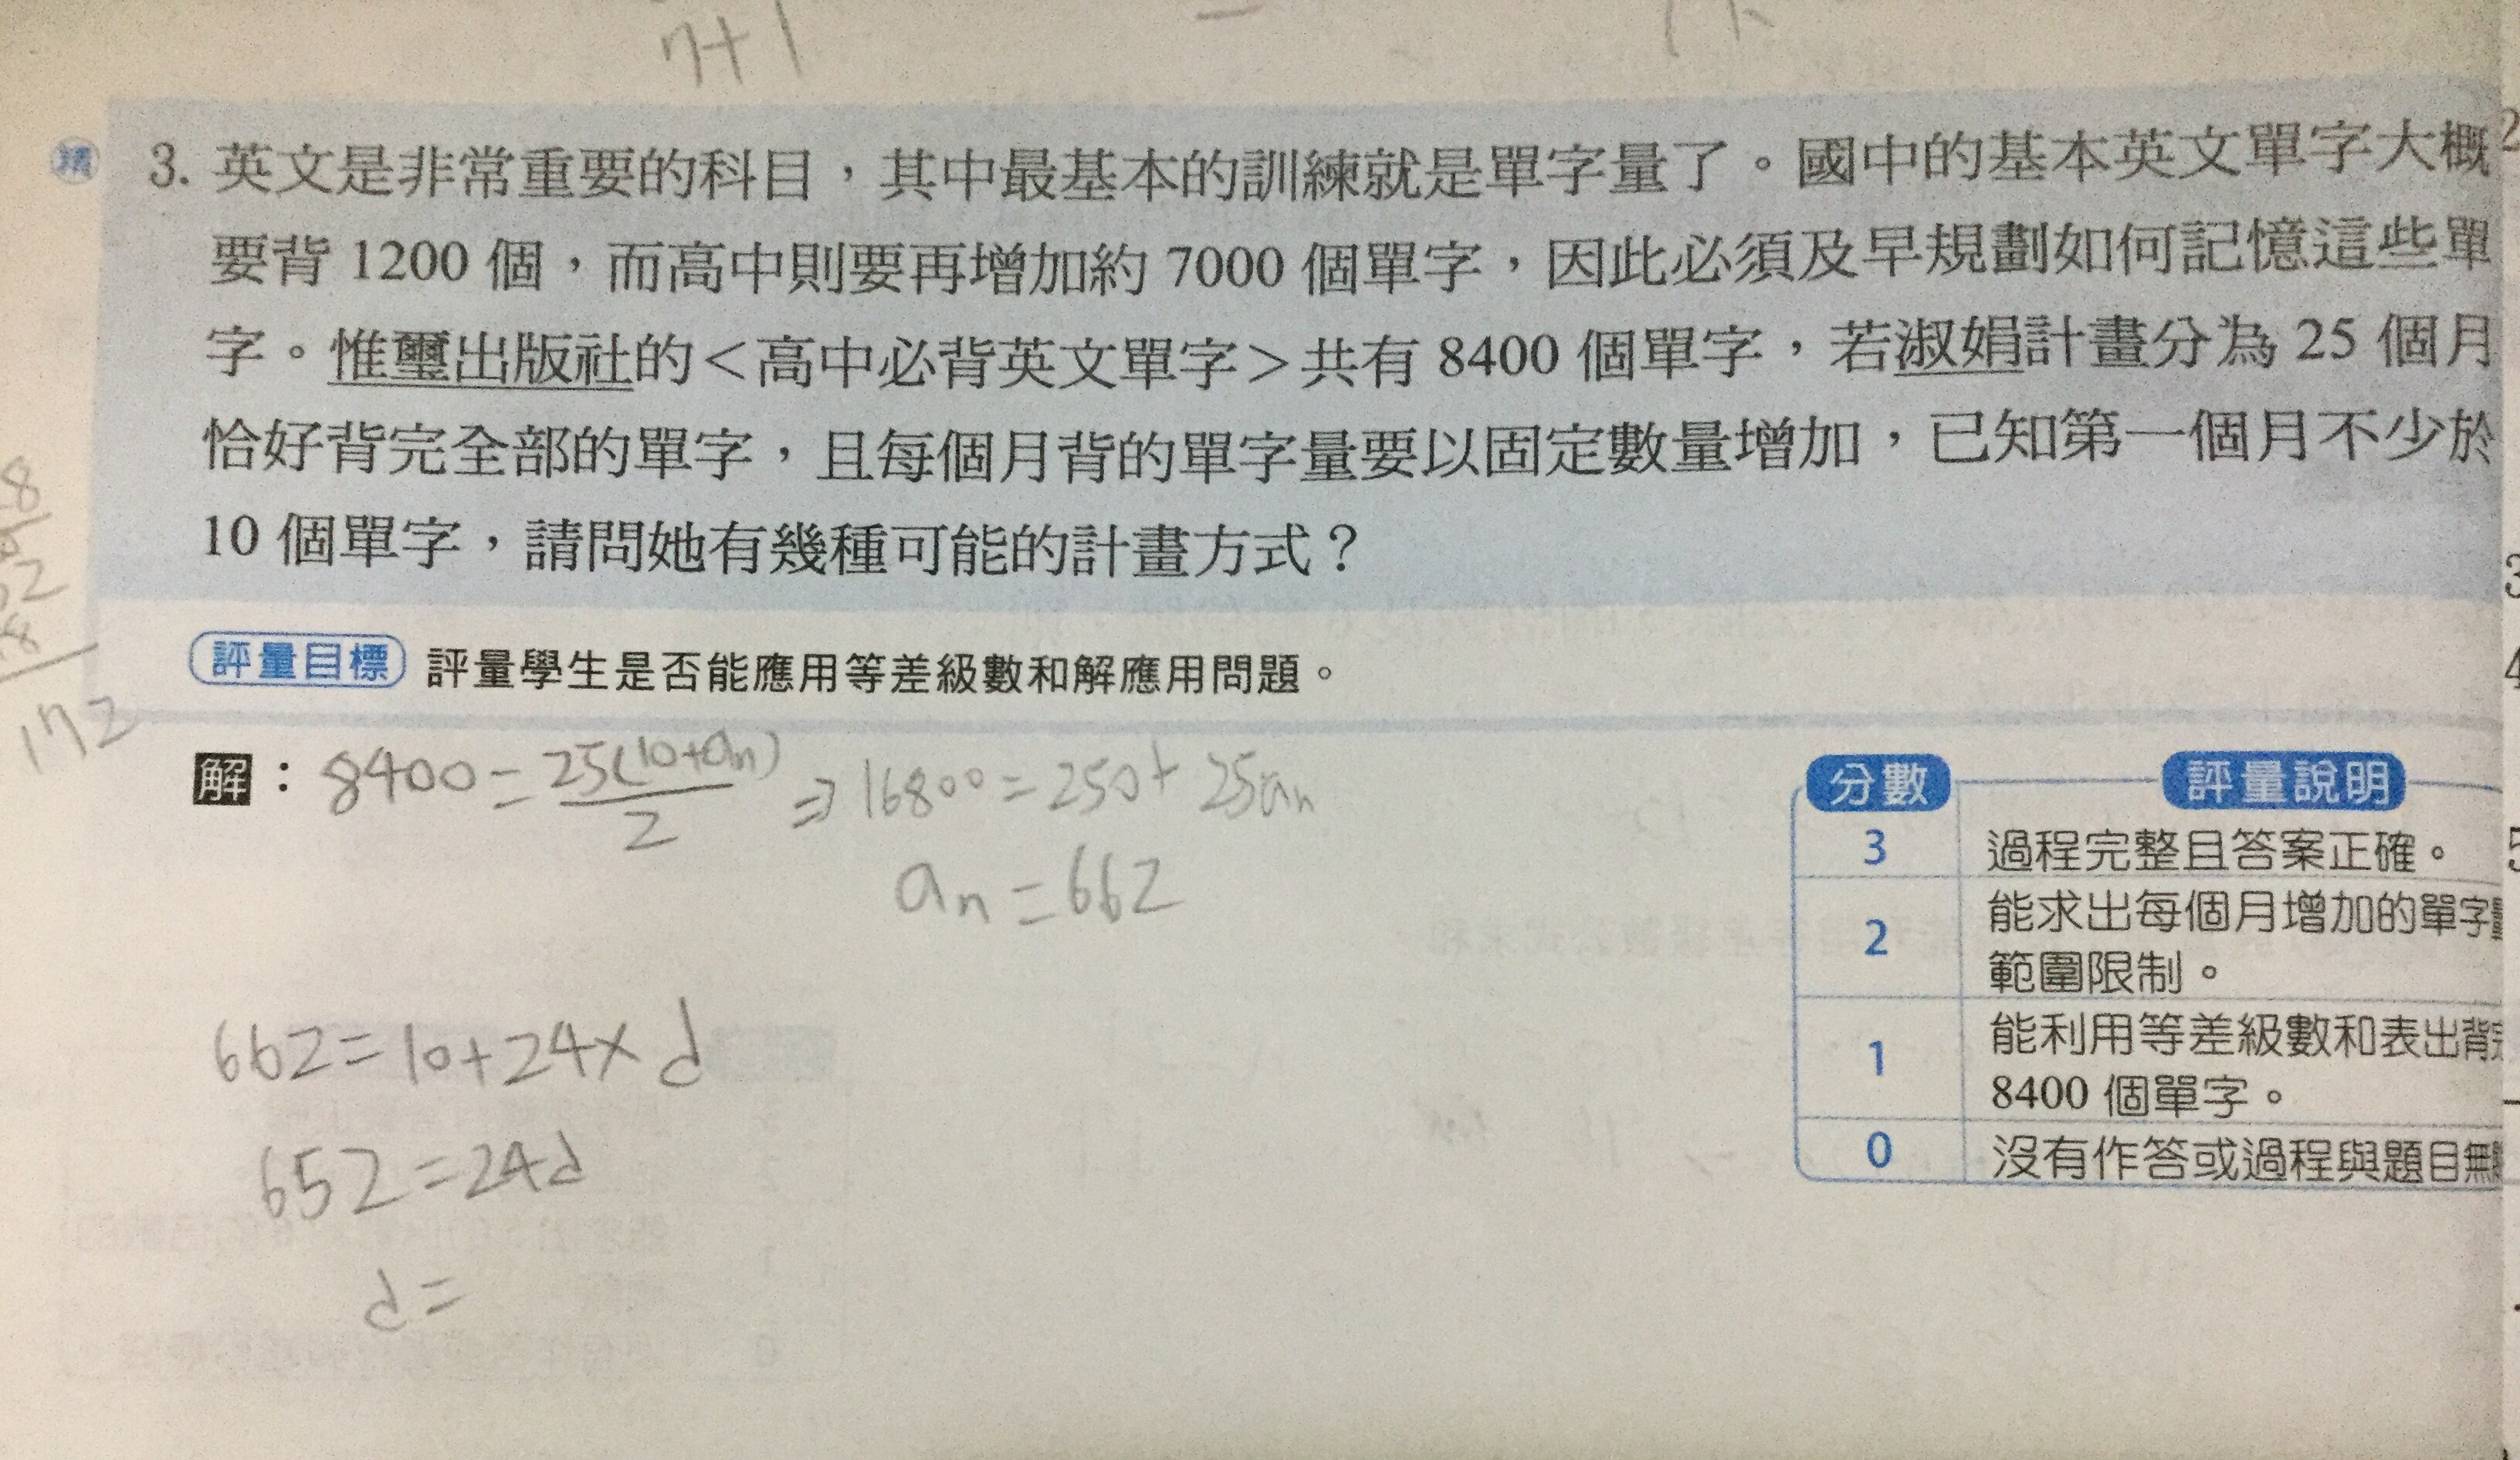 n+1
精
3. 英文是非常重要的科目，其中最基本的訓練就是單字量了。國中的基本英文單字大概
要背 1200 個，而高中則要再增加約 7000 個單字，因此必須及早規劃如何記憶這些單
字。惟璽出版社的＜高中必背英文單字＞共有 8400 個單字，若淑娟計畫分為 25 個月
恰好背完全部的單字，且每個月背的單字量要以固定數量增加，已知第一個月不少於
10 個單字，請問她有幾種可能的計畫方式？
評量目標 評量學生是否能應用等差級數和解應用問題。
172
解：8400=25(10+an)/2 ⇒ 16800=250+25an
an=662
662=10+24×d
652=24d
d=
分數 評量說明
3 過程完整且答案正確。
2 能求出每個月增加的單字
範圍限制。
1 能利用等差級數和表出背
8400 個單字。
0 沒有作答或過程與題目無
2
3
4
5